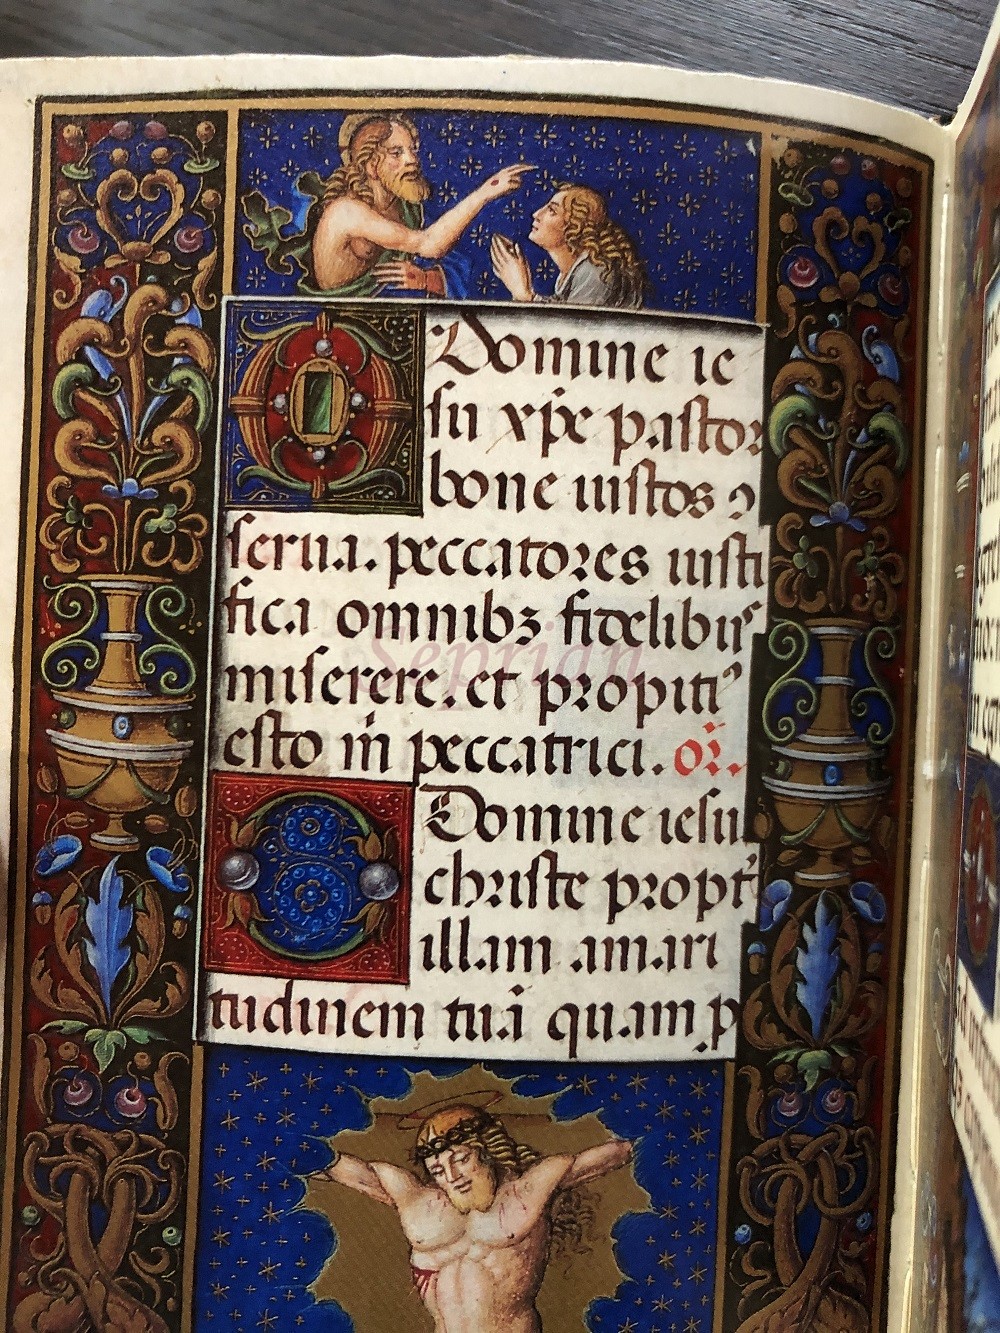 O Domine ie
su xp̄e pastor
bone iustos ꝯ
serua. peccatores iusti
fica omnibꝫ fidelibus
miserere. et propitiꝰ
esto m̄ peccatrici. or̄.
O Domine iesu
christe propt̄
illam amari
tudinem tuā quam p
Seprian